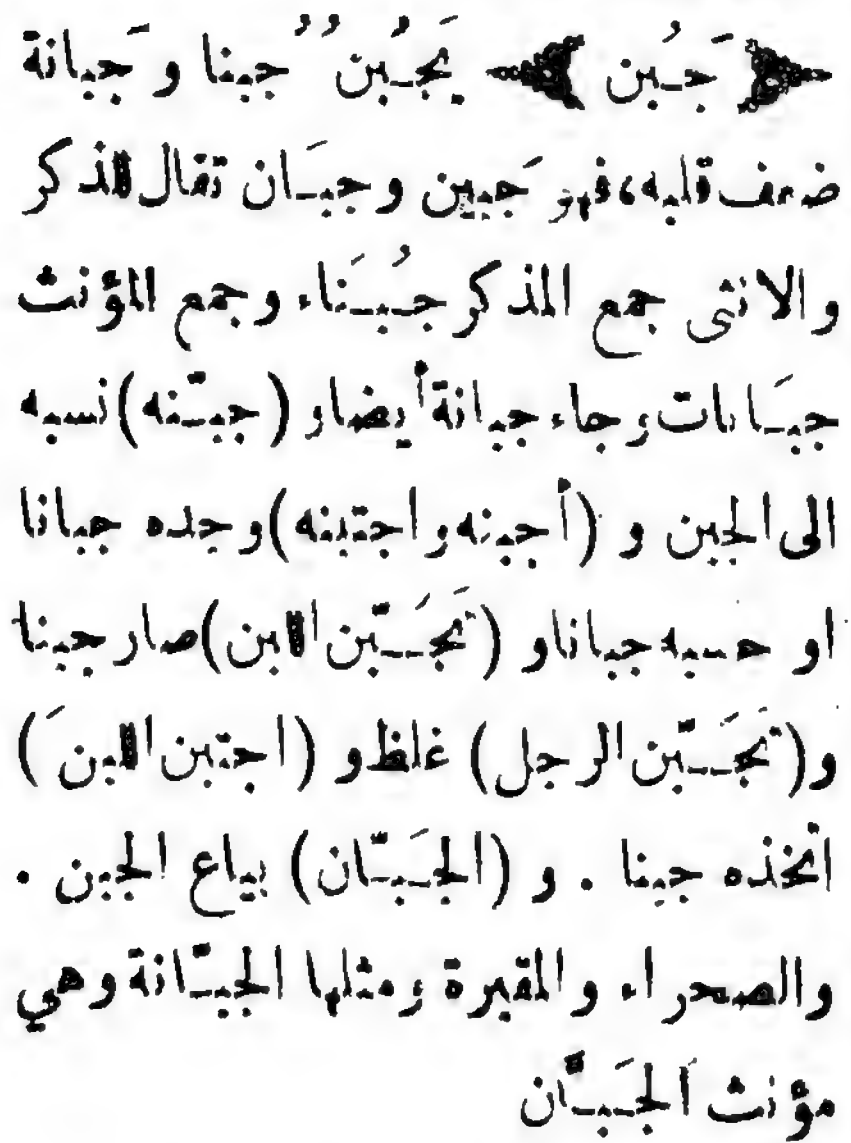 ﴿ جَبُن ﴾ يَجْبُن جُبْنا و جَبانة
ضعف قلبه، فهو جَبين وجبَان تقال للذكر
والانثى جمع المذكر جُبَناء وجمع المؤنث
جبَانات وجاء جبانة أيضا و (جبّنه) نسبه
الى الجبن و (أجبنه واجتبنه) وجده جبانا
او حسبه جبانا و (تَجَبّن اللبن) صار جبنا
و (تَجَبّن الرجل) غلظ و (اجتبن اللبنَ)
اتخذه جبنا . و (الجَبّان) بياع الجبن .
والصحراء والمقبرة ومثلها الجبّانة وهي
مؤنث الجَبَّان